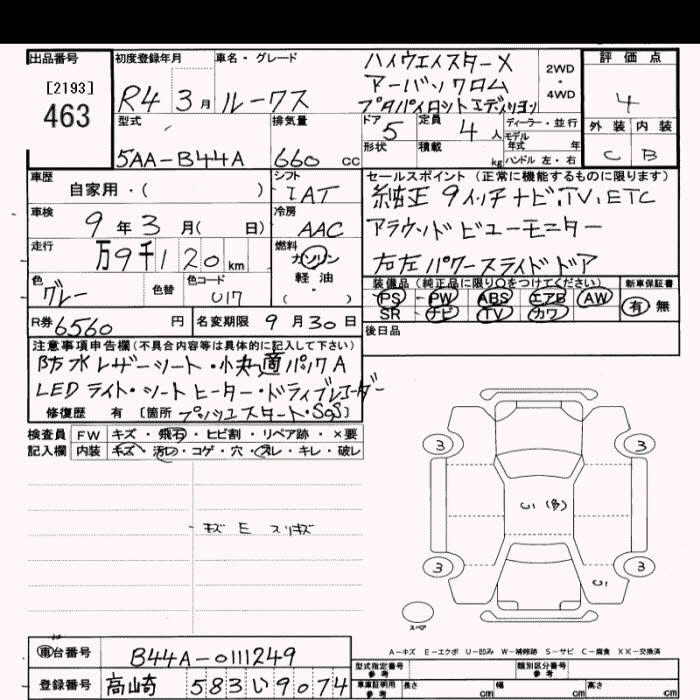 出品番号 初度登録年月 車名・グレード ハイウエイスターX 2WD・4WD 評価点
[2193] 463 R4 3月 ルークス アーバンクロム 4
プロパイロットエディション
型式 排気量 ドア 5 定員 4人 ディーラー・並行 外装 内装
5AA-B44A 660cc 形状 積載 kg モデル年式 年 ハンドル 左・右 C B
車歴 自家用・( ) シフト IAT セールスポイント(正常に機能するものに限ります)
車検 9年3月( 日) 冷房 AAC 純正9インチナビ,TV,ETC
走行 万9千120km 燃料 ガソリン・軽油・( ) アラウンドビューモニター
色 グレー 色替 色コード U17 右左パワースライドドア
装備品(純正品に限り○をつけてください) 新車保証書
PS・PW・ABS・エアB・AW 有・無
SR ナビ・TV・カワ
R券 6560円 名変期限 9月30日 後日品
注意事項申告欄(不具合内容等は具体的に記入して下さい)
防水レザーシート・快適パックA
LEDライト・シートヒーター・ドライブレコーダー
修復歴 有 [箇所 プッシュスタート・SOS]
検査員記入欄 FW キズ・飛石・ヒビ割・リペア跡・×要
内装 キズ・汚れ・コゲ・穴・スレ・キレ・破レ
キズ E スリキズ
3 3
C1 (多)
3 3
C1
スペア
A-キズ E-エクボ U-凹み W-補修跡 S-サビ C-腐食 XX-交換済
車台番号 B44A-0111249 型式指定番号 参考 類別区分番号 参考
登録番号 高崎 583 い 9074 車庫証明用 参考 長さ cm 幅 cm 高さ cm